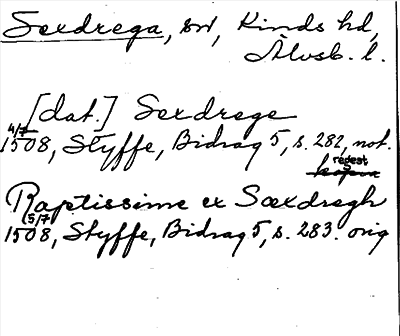 Sexdrega, sn, Kinds hd,
Älvsb. l.
[dat.] Sexdrege
4/7 1508, Styffe, Bidrag 5, s. 282, not.
regest
Raptissime ex Sæxdregh
5/7 1508, Styffe, Bidrag 5, s. 283. orig